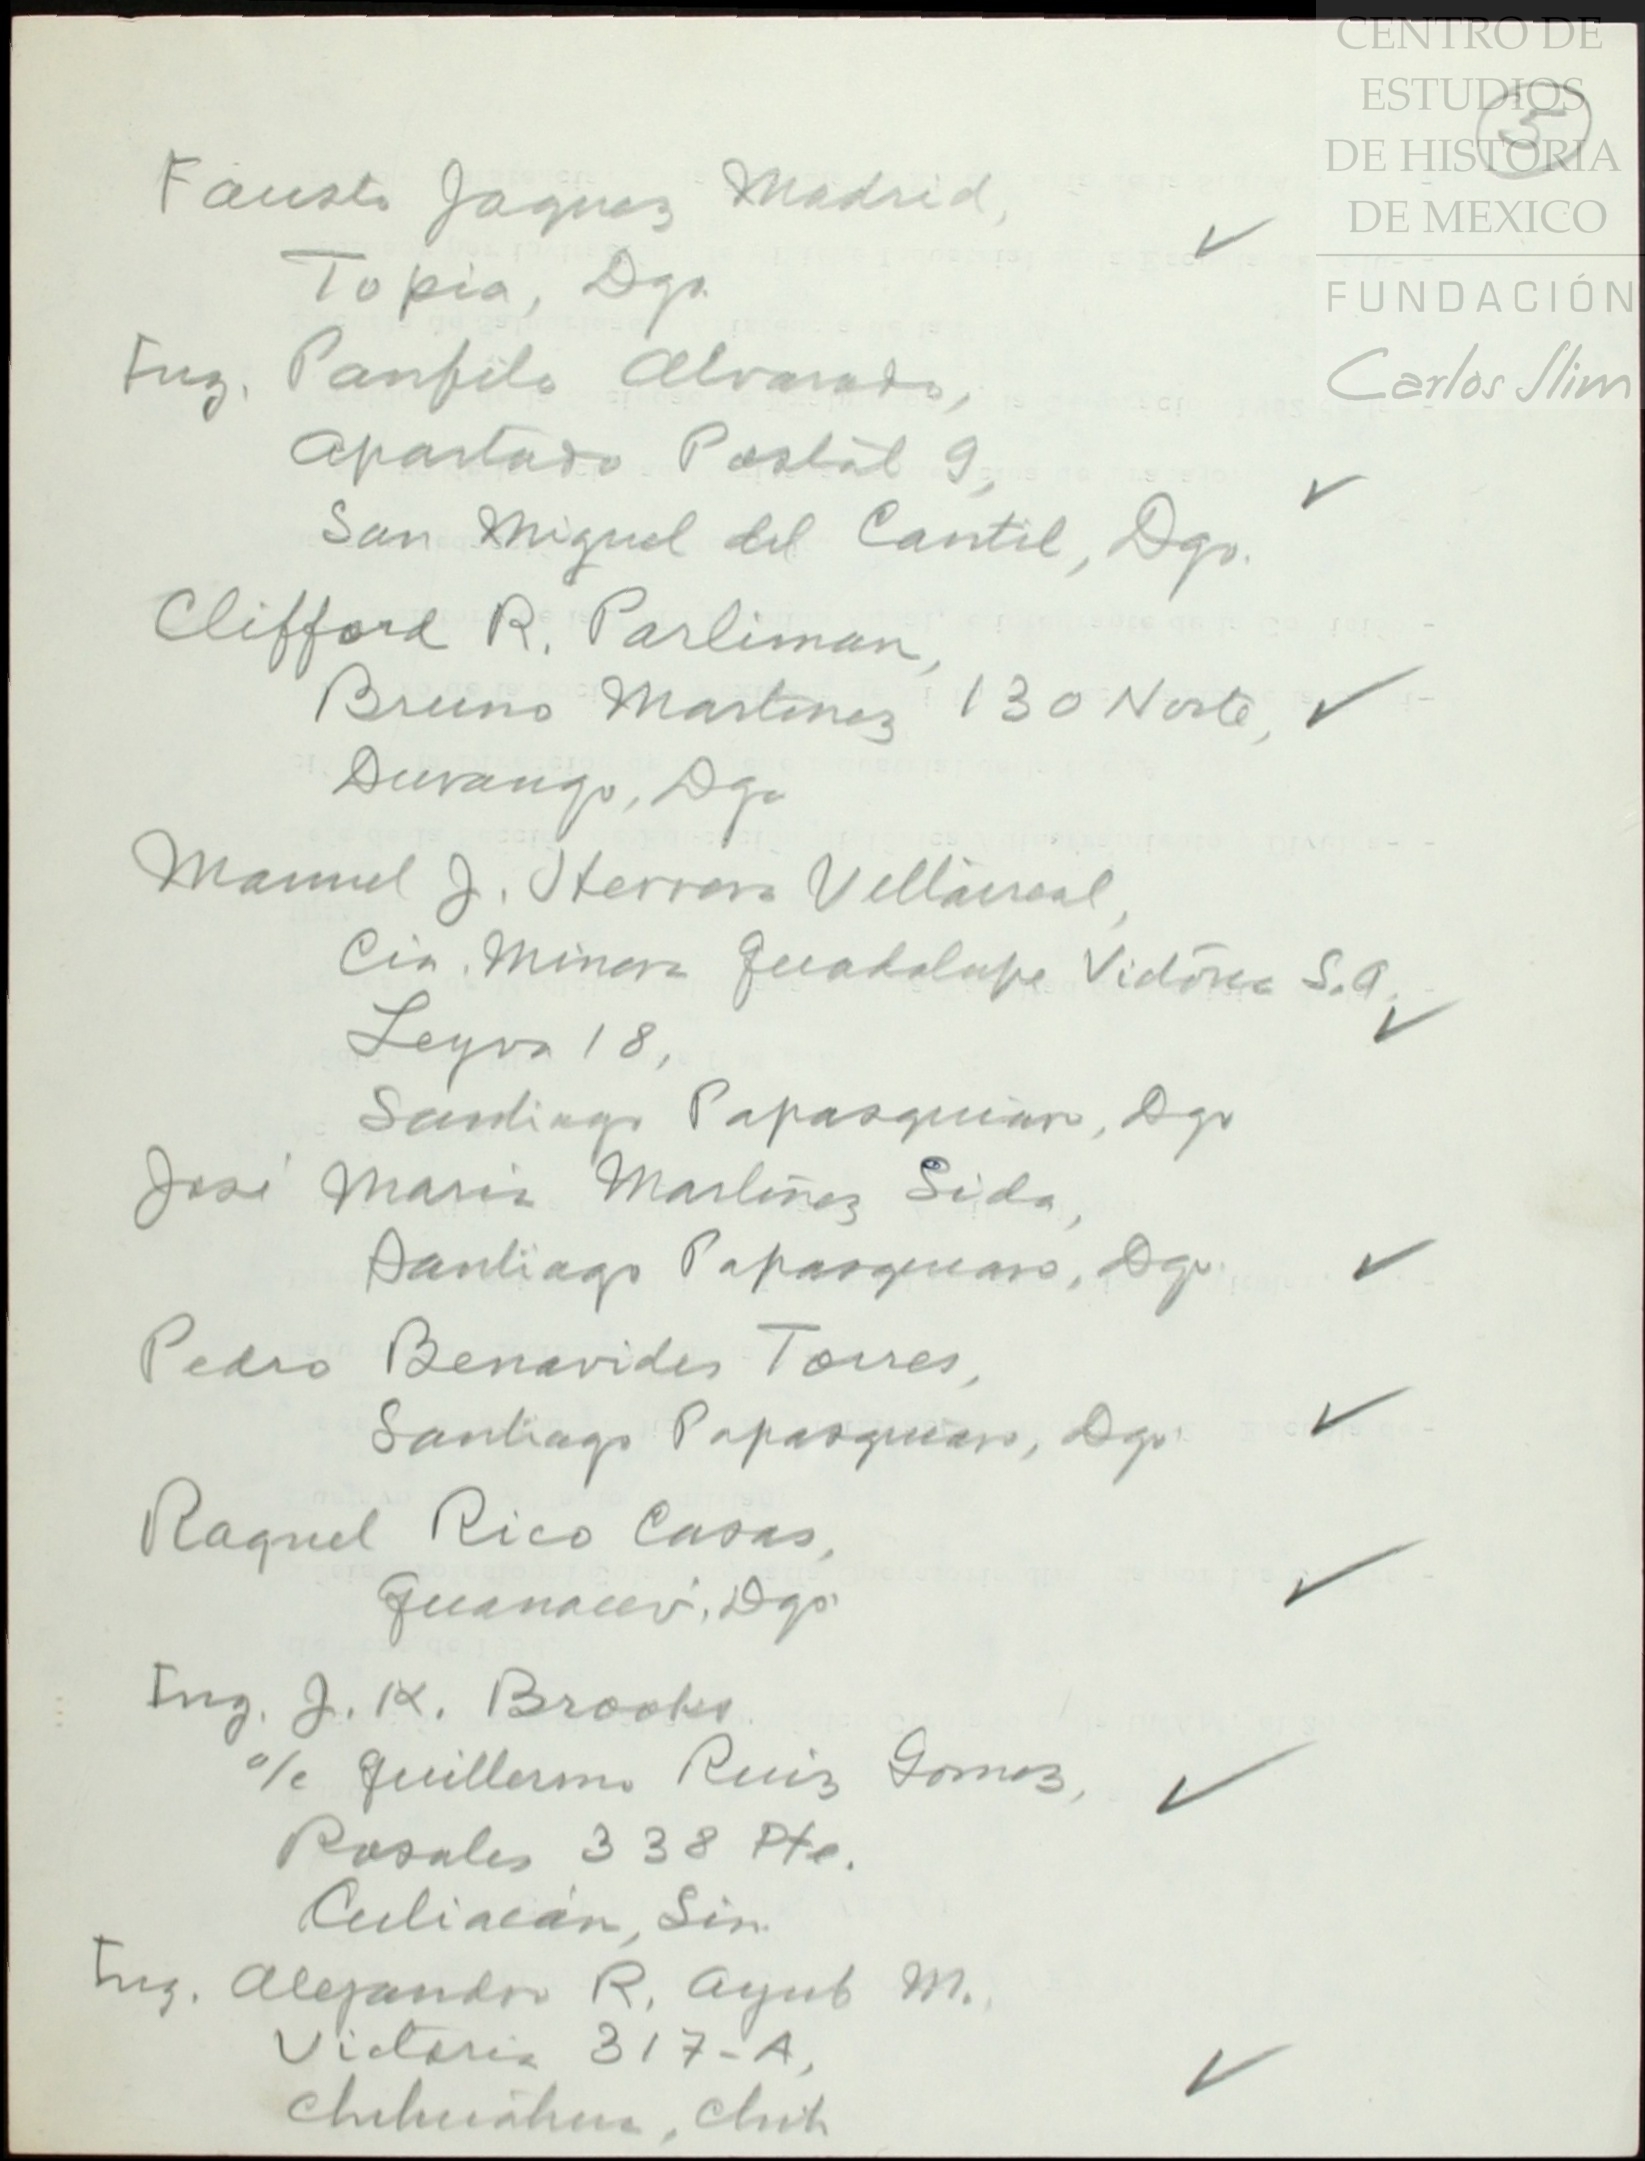 CENTRO DE
ESTUDIOS
DE HISTORIA
DE MEXICO
FUNDACIÓN
Carlos Slim
5
Fausto Jaquez Madrid, ✓
Topia, Dgo.
Ing. Panfilo Alvarado,
Apartado Postal 9, ✓
San Miguel del Cantil, Dgo.
Clifford R. Parliman,
Bruno Martinez 130 Norte, ✓
Durango, Dgo
Manuel J. Herrera Villarreal,
Cia. Minera Guadalupe Victoria S.A.
Leyva 18, ✓
Santiago Papasquiaro, Dgo
José Maria Martinez Sida,
Santiago Papasquiaro, Dgo. ✓
Pedro Benavides Torres,
Santiago Papasquiaro, Dgo. ✓
Raquel Rico Casas,
Guanaceví, Dgo. ✓
Ing. J. K. Brooks
c/o Guillermo Ruiz Gomez, ✓
Rosales 338 Pte.
Culiacán, Sin.
Ing. Alejandro R. Ayub M.,
Victoria 317-A, ✓
Chihuahua, Chih